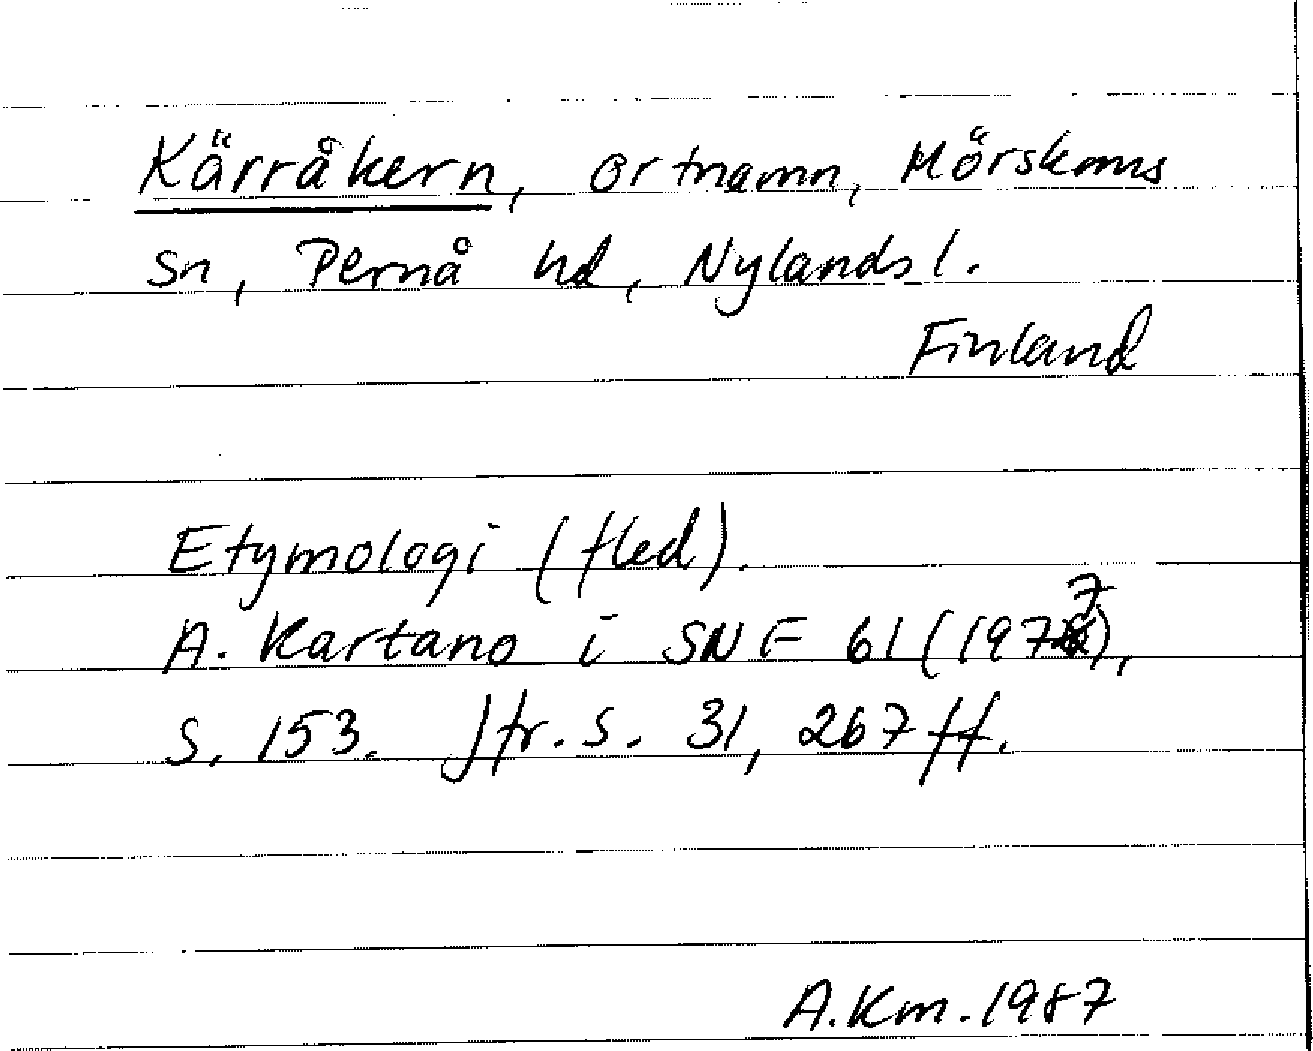 Kärråkern, ortnamn, Mörskoms
sn, Pernå hd, Nylands l.
Finland
Etymologi (fled).
A. Kartano i SNF 61 (1977),
s. 153. Jfr. s. 31, 267 ff.
A.Km. 1987